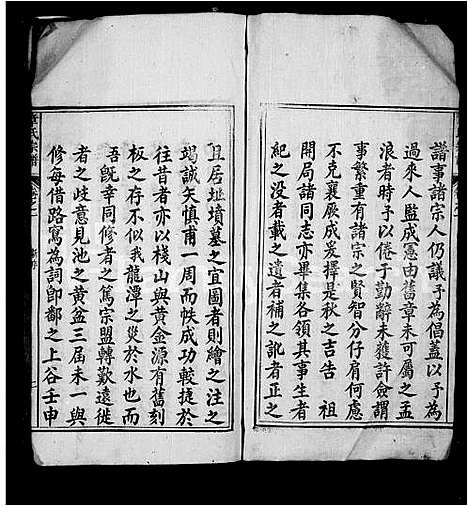 譜事諸宗人仍議予為倡蓋以予為
過來人監成憲由舊章未可屬之孟
浪者時予以倦于勤辭未獲許僉謂
事繁重有諸宗之賢智分仔肩何慮
不克襄厥成爰擇是秋之吉告祖
開局諸同志亦畢集各領其事生者
紀之没者載之遺者補之訛者正之
且居址墳墓之宜圖者則繪之注之
竭誠矢慎甫一周而帙成功較捷於
往昔者亦以棧山與黃金源有舊刻
板之存不似我龍潭之災於水也而
吾既幸同修者之篤宗盟轉歎遠徙
者之歧意見池之黃盆三屆未一與
修每借路寫為詞卽鄱之上谷壬申
氏宗譜